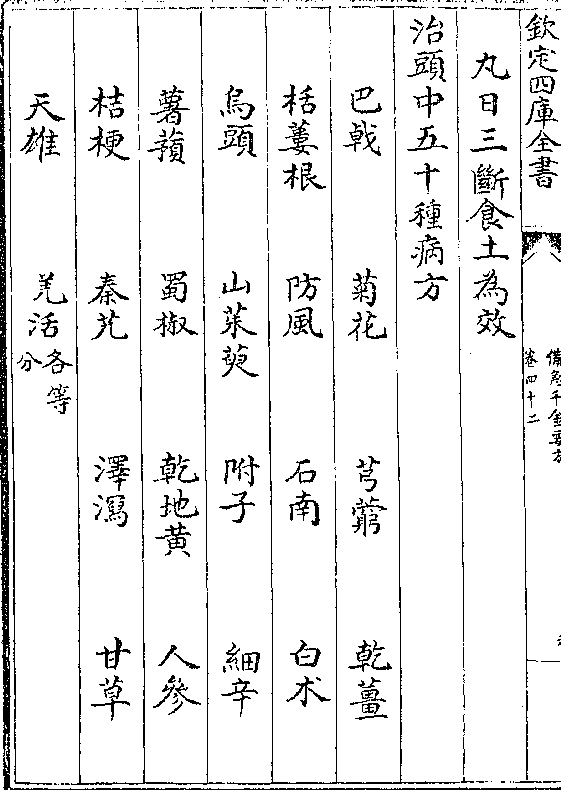 欽定四庫全書
備急千金要方
卷四十二
丸日三斷食土為效
治頭中五十種病方
巴戟 菊花 芎藭 乾薑
栝蔞根 防風 石南 白术
烏頭 山茱萸 附子 細辛
薯蕷 蜀椒 乾地黄 人參
桔梗 秦艽 澤瀉 甘草
天雄 羌活各等分